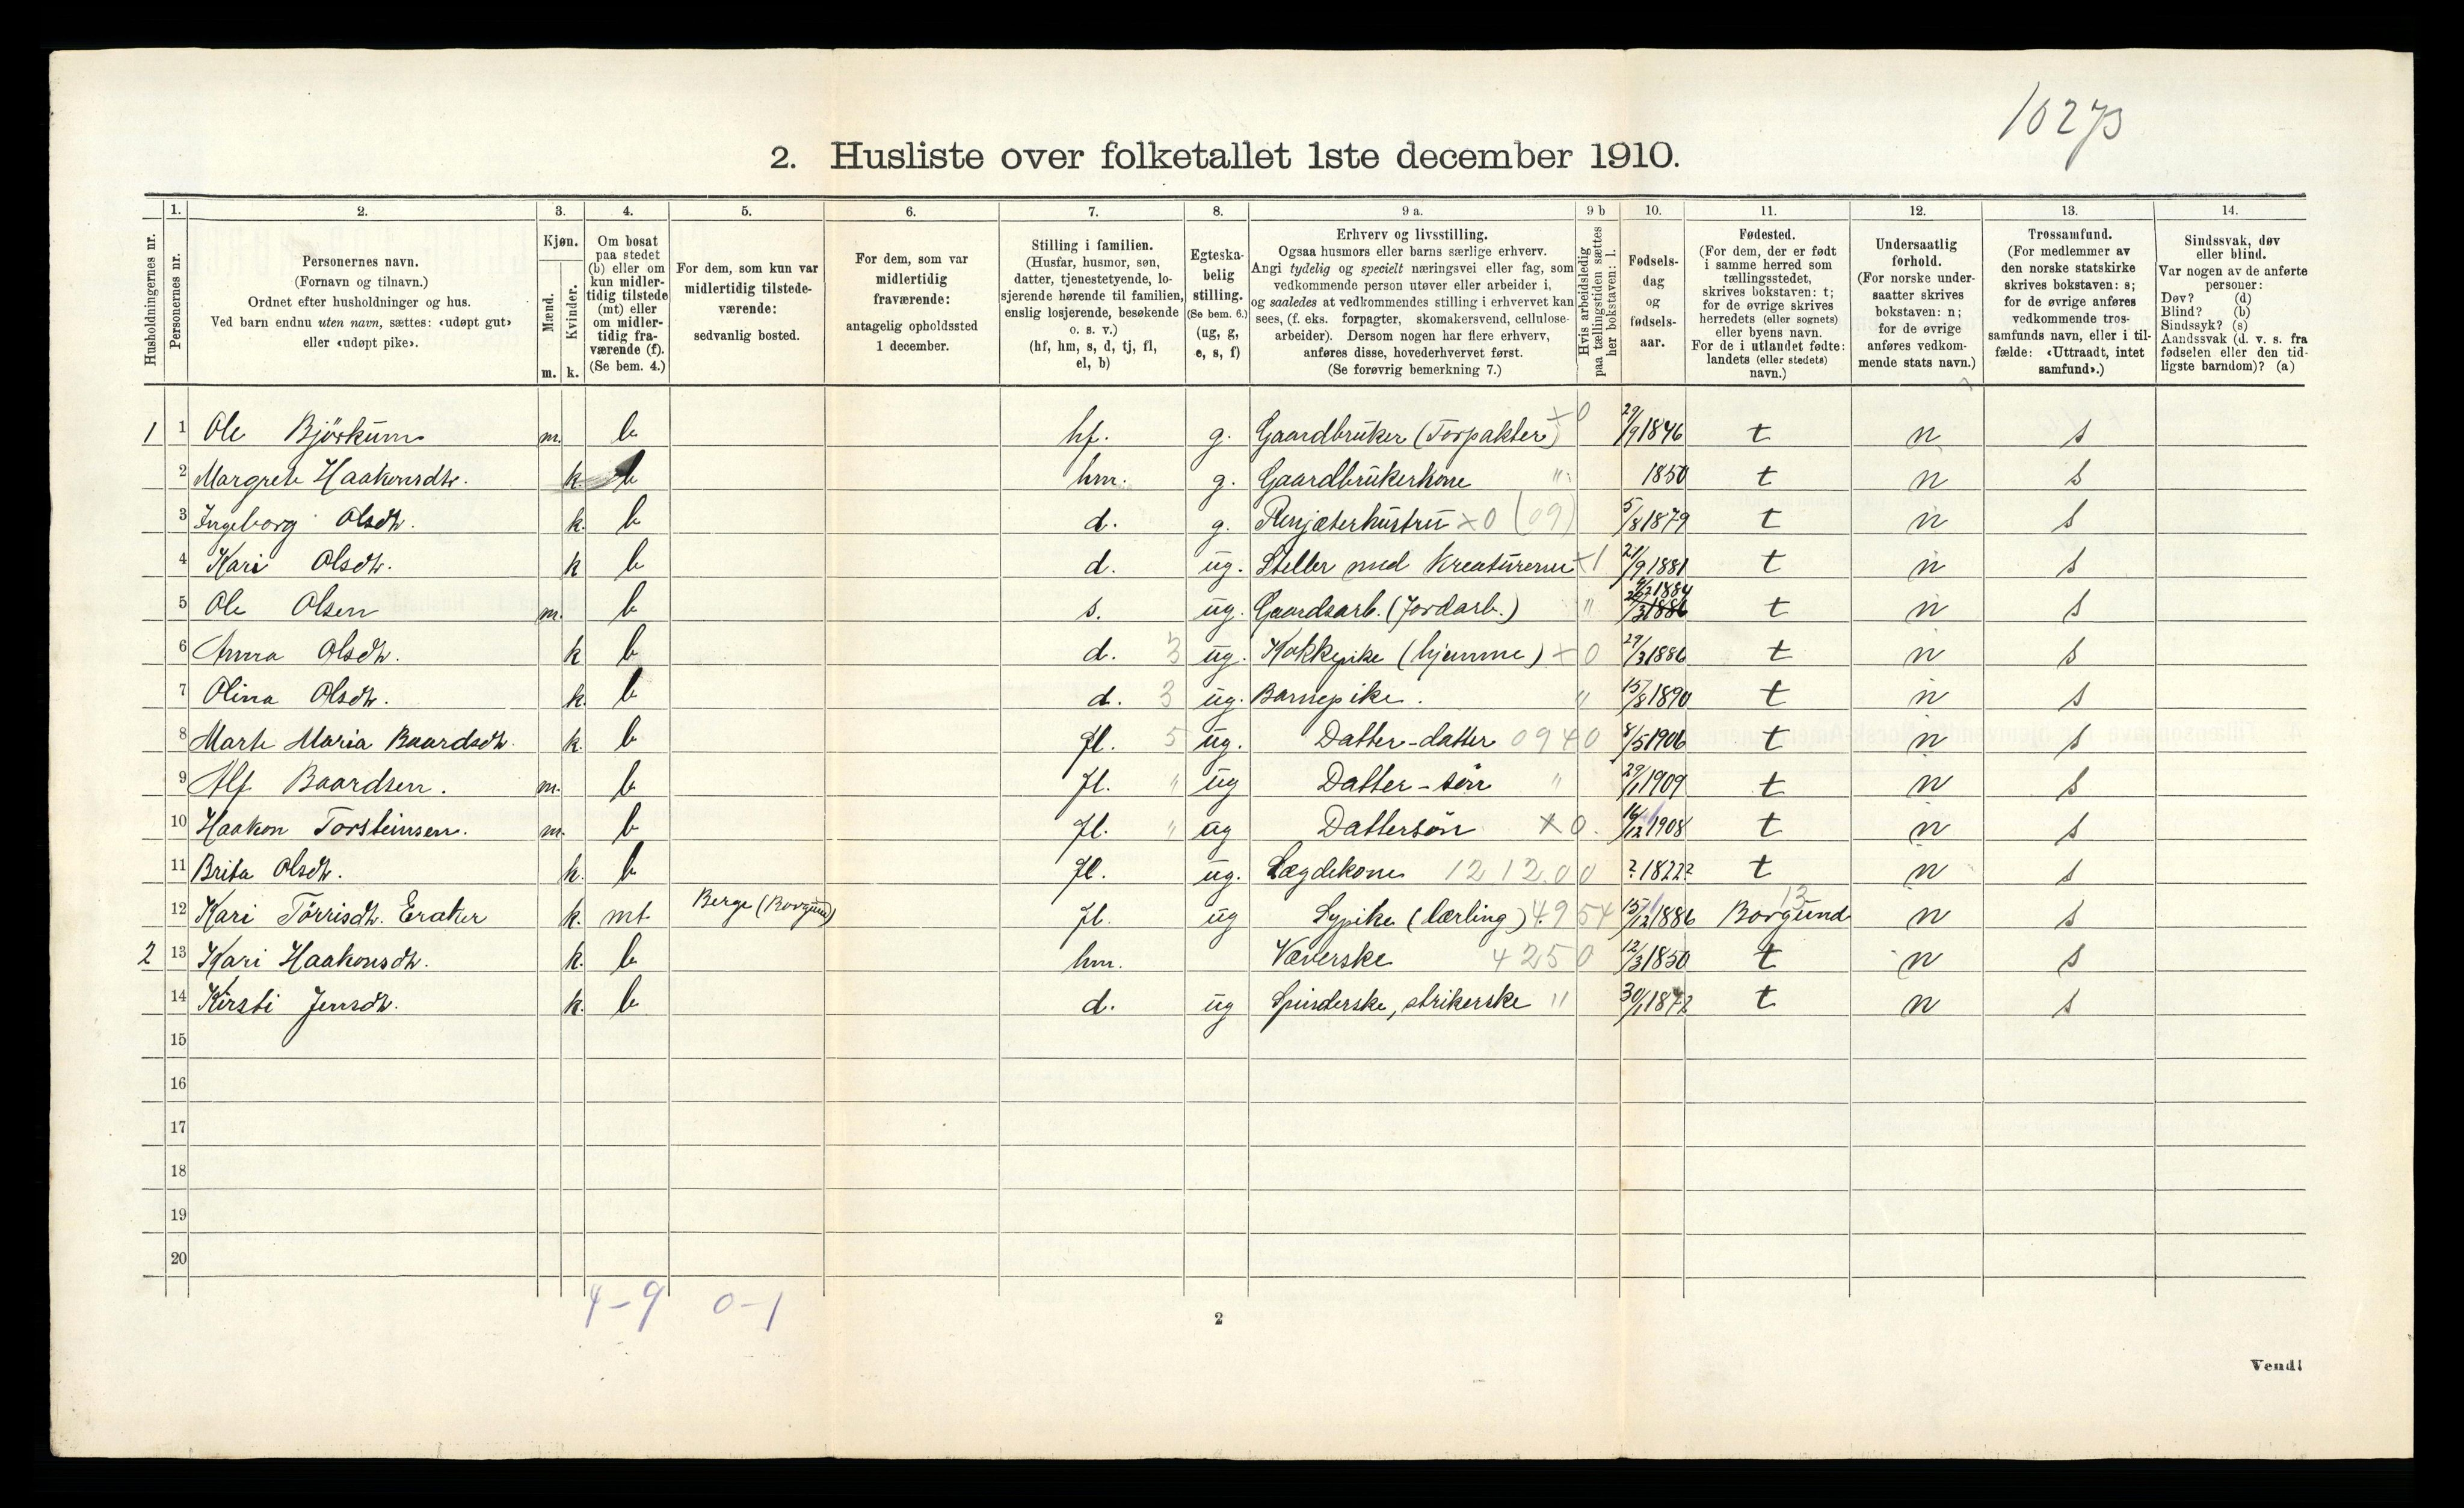 10273
2. Husliste over folketallet 1ste december 1910.
1. 2. 3. 4. 5. 6. 7. 8. 9 a. 9 b 10. 11. 12. 13. 14.
Husholdningernes nr.
Personernes nr.
Personernes navn.
(Fornavn og tilnavn.)
Ordnet efter husholdninger og hus.
Ved barn endnu uten navn, sættes: «udøpt gut»
eller «udøpt pike».
Kjøn.
Mænd.
Kvinder.
m. k.
Om bosat
paa stedet
(b) eller om
kun midler-
tidig tilstede
(mt) eller
om midler-
tidig fra-
værende (f).
(Se bem. 4.)
For dem, som kun var
midlertidig tilstede-
værende:
sedvanlig bosted.
For dem, som var
midlertidig
fraværende:
antagelig opholdssted
1 december.
Stilling i familien.
(Husfar, husmor, søn,
datter, tjenestetyende, lo-
sjerende hørende til familien,
enslig losjerende, besøkende
o. s. v.)
(hf, hm, s, d, tj, fl,
el, b)
Egteska-
belig
stilling.
(Se bem. 6.)
(ug, g,
e, s, f)
Erhverv og livsstilling.
Ogsaa husmors eller barns særlige erhverv.
Angi tydelig og specielt næringsvei eller fag, som
vedkommende person utøver eller arbeider i,
og saaledes at vedkommendes stilling i erhvervet kan
sees, (f. eks. forpagter, skomakersvend, cellulose-
arbeider). Dersom nogen har flere erhverv,
anføres disse, hovederhvervet først.
(Se forøvrig bemerkning 7.)
Hvis arbeidsledig
paa tællingstiden sættes
her bokstaven: l.
Fødsels-
dag
og
fødsels-
aar.
Fødested.
(For dem, der er født
i samme herred som
tællingsstedet,
skrives bokstaven: t;
for de øvrige skrives
herredets (eller sognets)
eller byens navn.
For de i utlandet fødte:
landets (eller stedets)
navn.)
Undersaatlig
forhold.
(For norske under-
saatter skrives
bokstaven: n;
for de øvrige
anføres vedkom-
mende stats navn.)
Trossamfund.
(For medlemmer av
den norske statskirke
skrives bokstaven: s;
for de øvrige anføres
vedkommende tros-
samfunds navn, eller i til-
fælde: «Uttraadt, intet
samfund».)
Sindssvak, døv
eller blind.
Var nogen av de anførte
personer:
Døv? (d)
Blind? (b)
Sindssyk? (s)
Aandssvak (d. v. s. fra
fødselen eller den tid-
ligste barndom)? (a)
1 1 Ole Björkum m. b hf. g. Gaardbruker (Forpakter) x 0 29/9 1846 t n s
2 Margrete Haakonsdtr. k. b hm. g. Gaardbrukerkone " 1850 t n s
3 Ingeborg Olsdtr. k. b d. g. Renjæterhustru x 0 (09) 5/8 1879 t n s
4 Kari Olsdtr. k b d. ug. Steller med Kreaturerne x 1 21/9 1881 t n s
5 Ole Olsen m. b s. ug. Gaardsarb. (Jordarb.) " 1884 1886 t n s
6 Anna Olsdtr. k b d. 3 ug. Kokkepike (hjemme) x 0 29/3 1886 t n s
7 Olina Olsdtr. k. b d. 3 ug. Barnepike. " 15/8 1890 t n s
8 Marte Maria Baardsdtr. k. b fl. 5 ug. Datter-datter 0940 8/5 1906 t n s
9 Alf Baardsen. m. b fl. " ug Datter-sön " 29/1 1909 t n s
10 Haakon Torsteinsen. m. b fl. " ug Dattersön x 0. 16/12 1908 t n s
11 Brita Olsdtr. k. b fl. ug. Lægdekone 12 12.00 ? 1822? t n s
12 Kari Törrisdtr. Eraker k. mt Berge (Borgund) fl. ug Sypike (lærling) 4954 15/12 1886 Borgund 13 n s
2 13 Kari Haakonsdtr. k. b hm. Væverske 4250 12/3 1850 t n s
14 Kirsti Jensdtr. k. b d. ug Spinderske, strikerske " 30/1 1872 t n s
15
16
17
18
19
20
4-9 0-1
2
Vend!